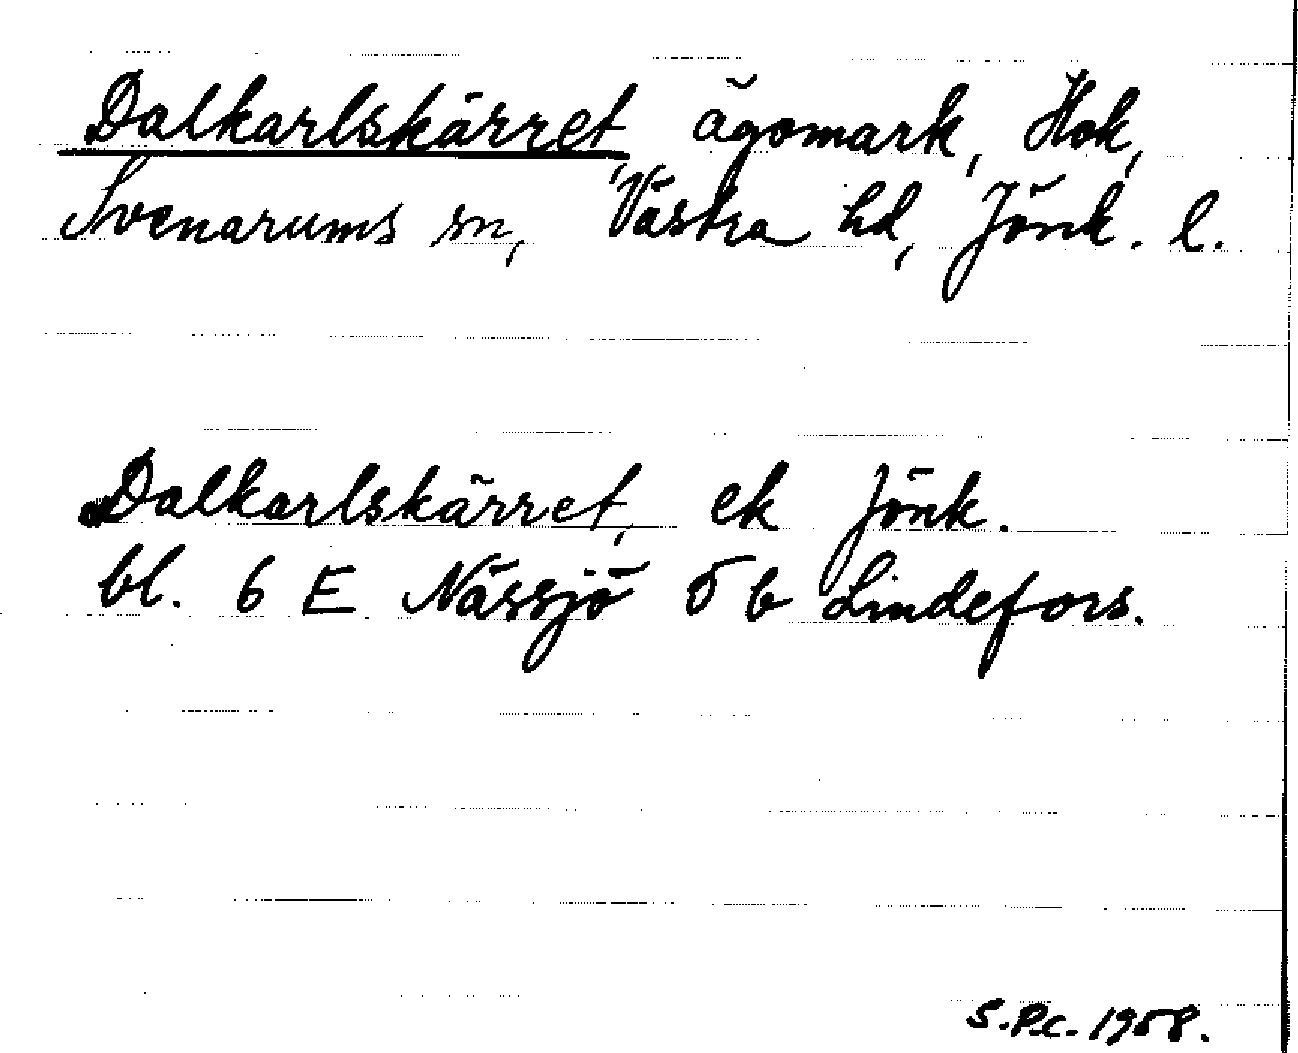 Dalkarlskärret, ägomark, Hok,
Svenarums sn, Västra hd, Jönk. l.
Dalkarlskärret, ek Jönk.
bl. 6 E Nässjö 5 b Lindefors.
S.P.C. 1958.